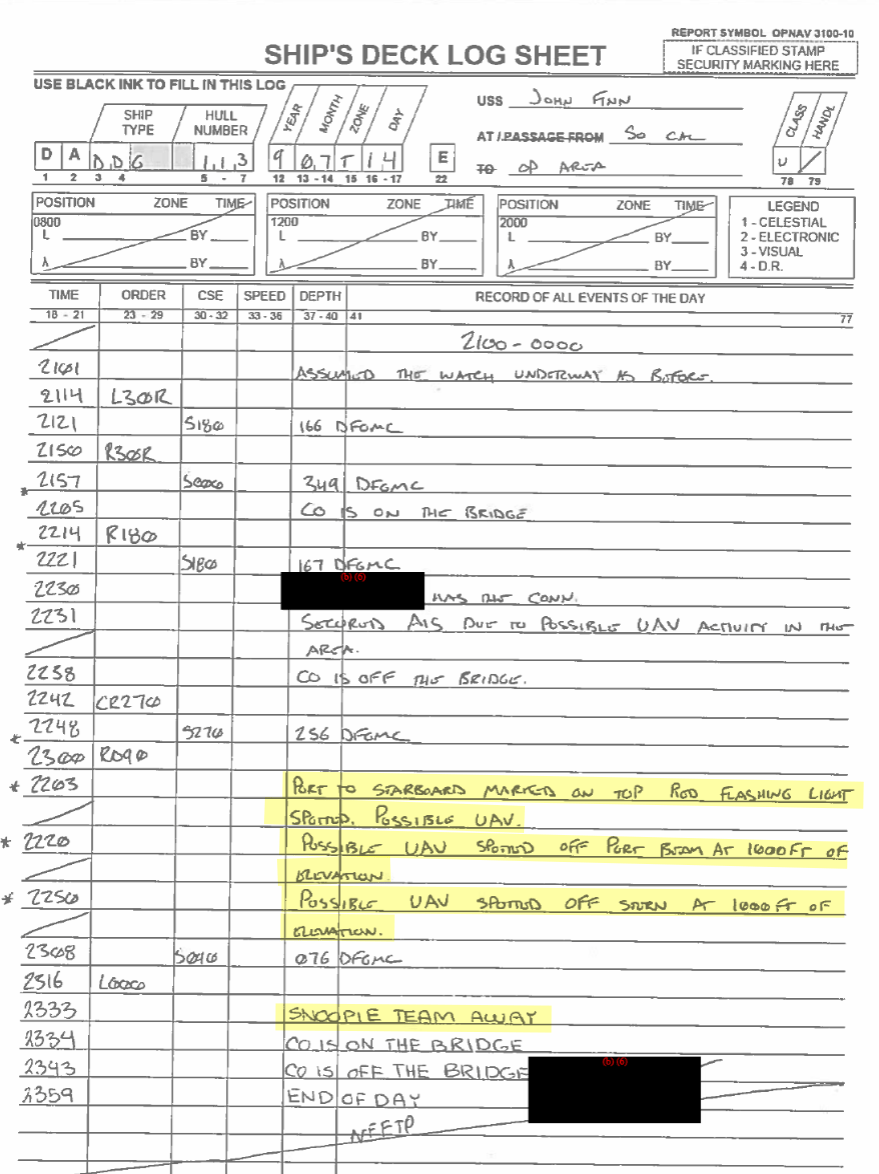 REPORT SYMBOL OPNAV 3100-10
SHIP'S DECK LOG SHEET
IF CLASSIFIED STAMP
SECURITY MARKING HERE
USE BLACK INK TO FILL IN THIS LOG
SHIP TYPE HULL NUMBER YEAR MONTH ZONE DAY
USS JOHN FINN
CLASS HANDL
AT / PASSAGE FROM SO CAL
D A D D G 1 1 3 9 0 7 T 1 4 E
TO OP AREA
U
1 2 3 4 5 - 7 12 13 -14 15 16 -17 22
78 79
POSITION ZONE TIME
0800
L BY
λ BY
POSITION ZONE TIME
1200
L BY
λ BY
POSITION ZONE TIME
2000
L BY
λ BY
LEGEND
1 - CELESTIAL
2 - ELECTRONIC
3 - VISUAL
4 - D.R.
TIME ORDER CSE SPEED DEPTH RECORD OF ALL EVENTS OF THE DAY
18 - 21 23 - 29 30 - 32 33 - 36 37 - 40 41 77
2100 - 0000
2101 ASSUMED THE WATCH UNDERWAY AS BEFORE.
2114 L300R
2121 S180 166 DFGMC
2150 R30R
* 2157 S000 349 DFGMC
2205 CO IS ON THE BRIDGE
* 2214 R180
2221 S180 167 DFGMC
(b) (6)
2230 HAS THE CONN.
2231 SECURED AIS DUE TO POSSIBLE UAV ACTIVITY IN THE
AREA.
2238 CO IS OFF THE BRIDGE.
2242 CR270
* 2248 S270 256 DFGMC
2300 R090
* 2203 PORT TO STARBOARD MARKED ON TOP RED FLASHING LIGHT
SPOTTED. POSSIBLE UAV.
* 2220 POSSIBLE UAV SPOTTED OFF PORT BEAM AT 1000 FT OF
ELEVATION.
* 2250 POSSIBLE UAV SPOTTED OFF STERN AT 1000 FT OF
ELEVATION.
2308 S090 076 DFGMC
2316 L000
2333 SNOOPIE TEAM AWAY
2334 CO IS ON THE BRIDGE
2343 CO IS OFF THE BRIDGE (b) (6)
2359 END OF DAY
NFETP